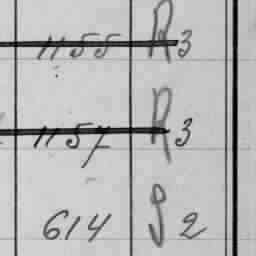 1155 R 3
1157 R 3
614 S 2